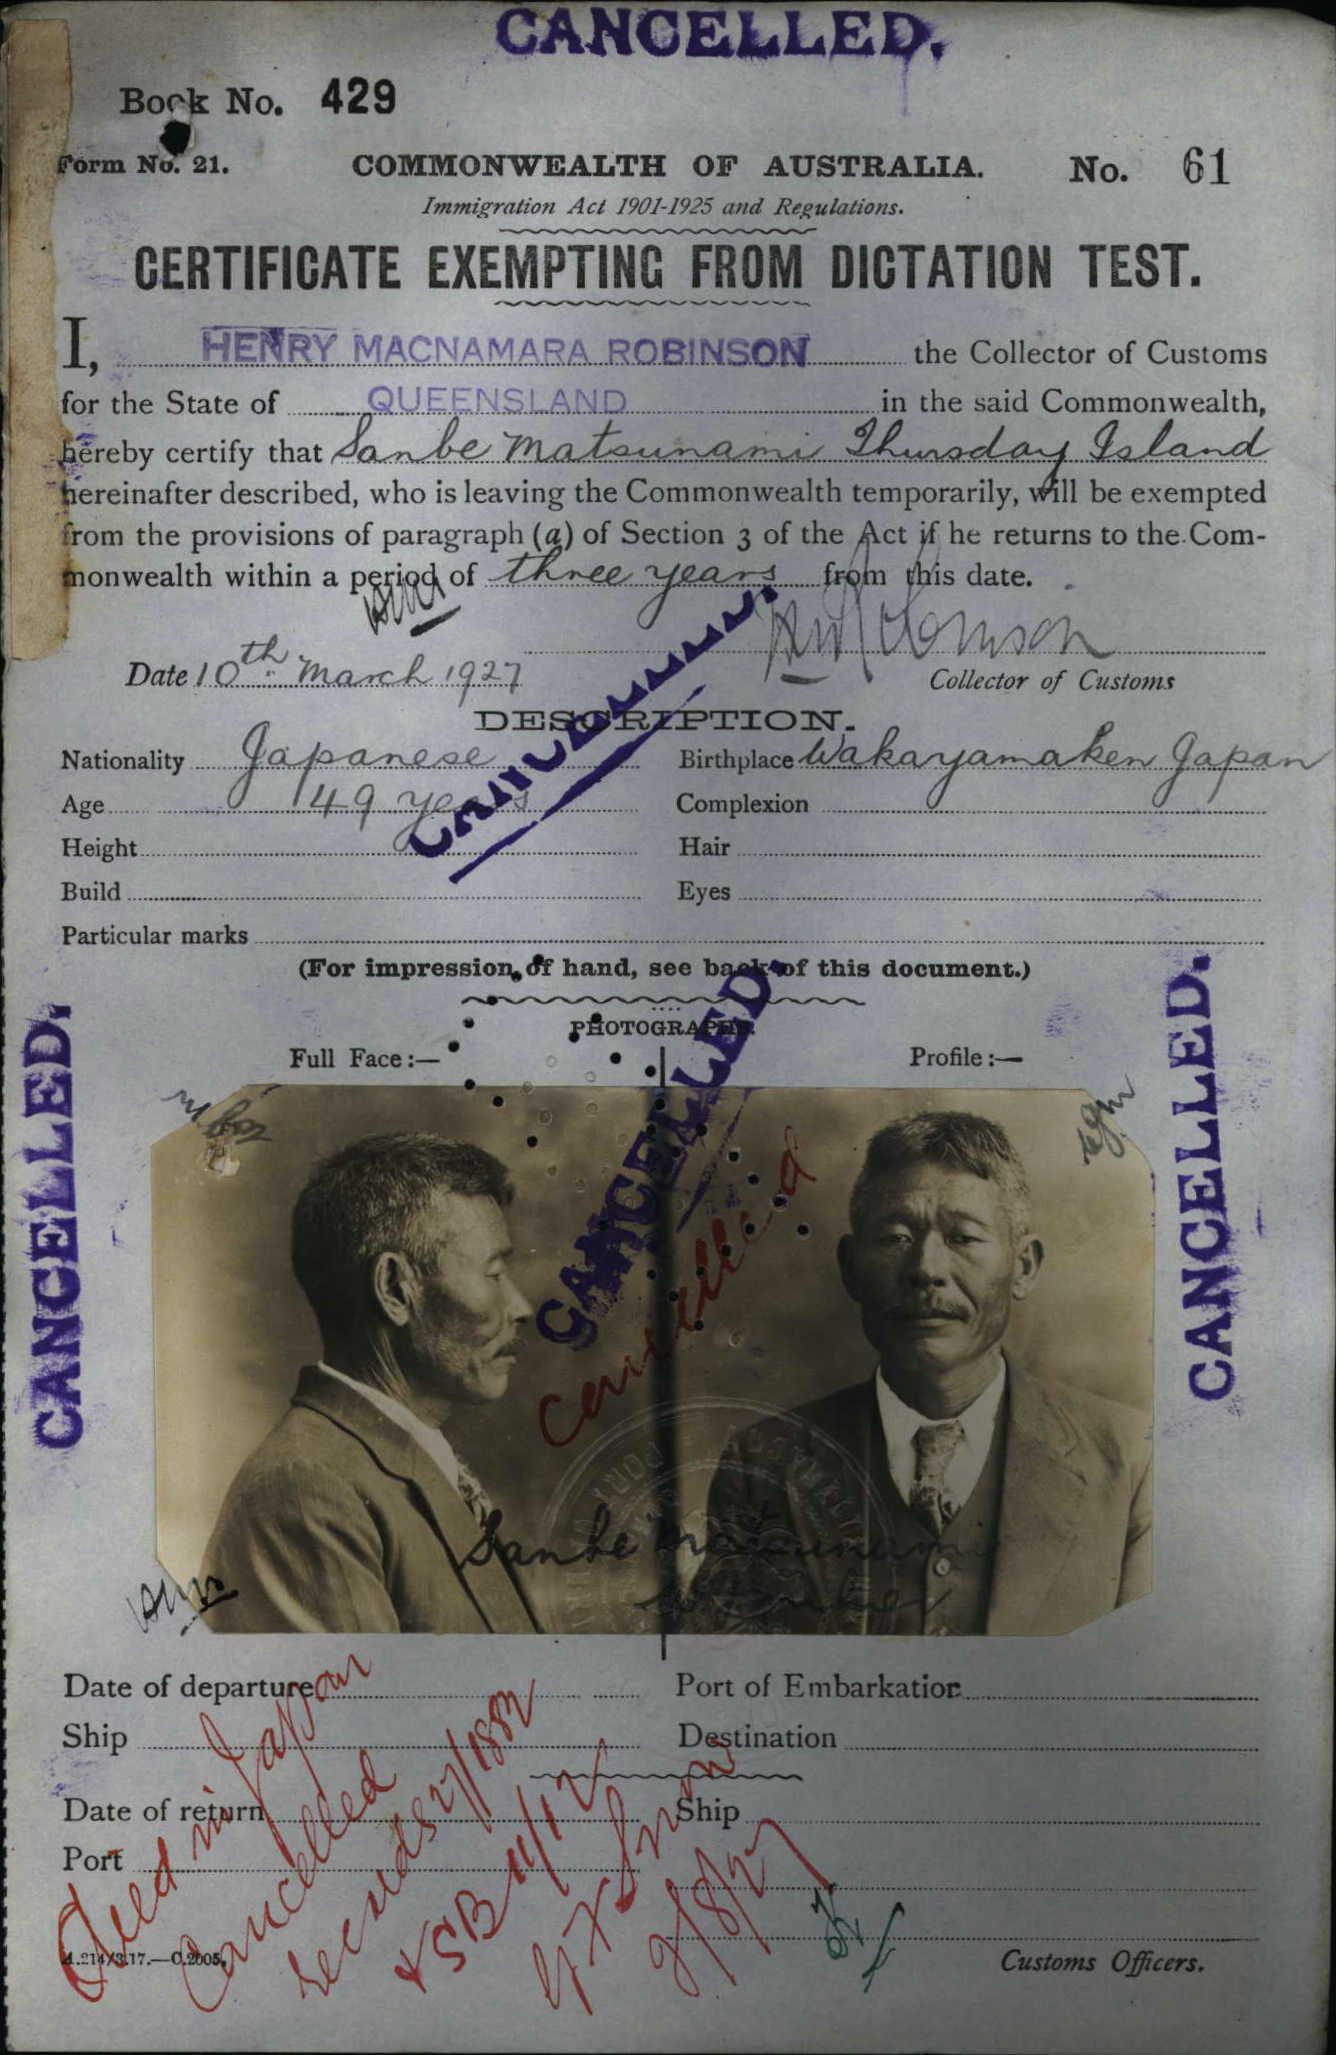 CANCELLED.
Book No. 429
Form No. 21. COMMONWEALTH OF AUSTRALIA. No. 61
Immigration Act 1901-1925 and Regulations.
CERTIFICATE EXEMPTING FROM DICTATION TEST.
I, HENRY MACNAMARA ROBINSON the Collector of Customs
for the State of QUEENSLAND in the said Commonwealth,
hereby certify that Sanbe Matsunami Thursday Island
hereinafter described, who is leaving the Commonwealth temporarily, will be exempted
from the provisions of paragraph (a) of Section 3 of the Act if he returns to the Com-
monwealth within a period of three years from this date.
HMR
HMRobinson
Date 10th March 1927
Collector of Customs
CANCELLED.
DESCRIPTION.
Nationality Japanese Birthplace Wakayamaken Japan
Age 49 years Complexion
Height Hair
Build Eyes
Particular marks
(For impression of hand, see back of this document.)
PHOTOGRAPHS.
Full Face:— Profile:—
CANCELLED.
CANCELLED.
CANCELLED.
Cancelled
Sanbe Matsunami
HMR
Date of departure Port of Embarkation
Ship Destination
Date of return Ship
Port
Died in Japan
Cancelled
see
27/1882
+ SB 11/12
2/8/27
A.214/3.17.—C.2005.
Customs Officers.